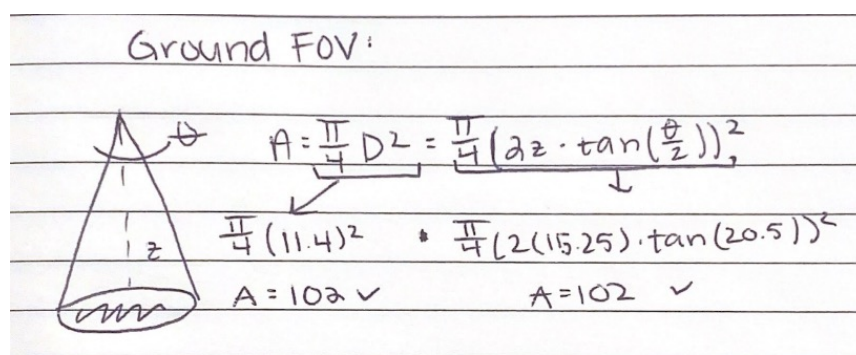 Ground FOV:
θ
A = π/4 D² = π/4 (2z · tan(θ/2))²
z
π/4 (11.4)² • π/4 (2(15.25) · tan(20.5))²
A = 102 ✓ A = 102 ✓